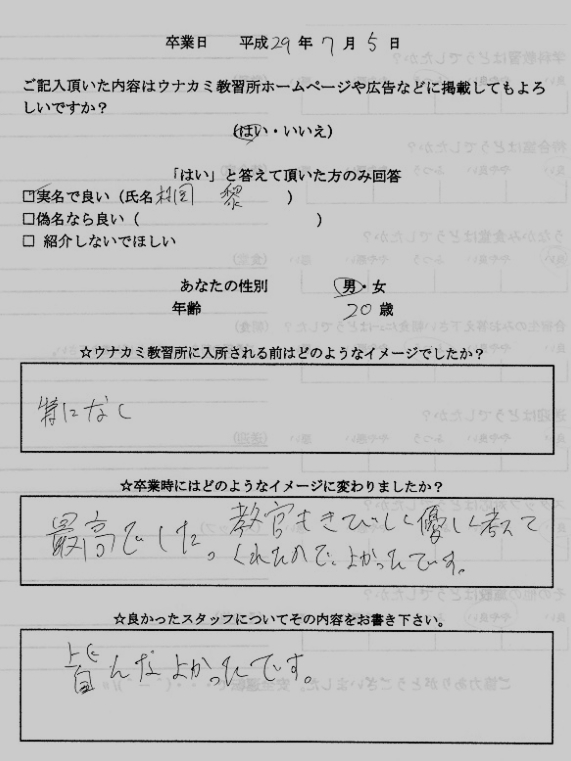 卒業日 平成29年7月5日
ご記入頂いた内容はウナカミ教習所ホームページや広告などに掲載してもよろ
しいですか?
(はい・いいえ)
「はい」と答えて頂いた方のみ回答
□実名で良い(氏名 黎 )
□偽名なら良い( )
□ 紹介しないでほしい
あなたの性別 男・女
年齢 20歳
☆ウナカミ教習所に入所される前はどのようなイメージでしたか?
特になし
☆卒業時にはどのようなイメージに変わりましたか?
最高でした。教官もきびしく優しく考えて
くれたので、よかったです。
☆良かったスタッフについてその内容をお書き下さい。
皆んなよかったです。